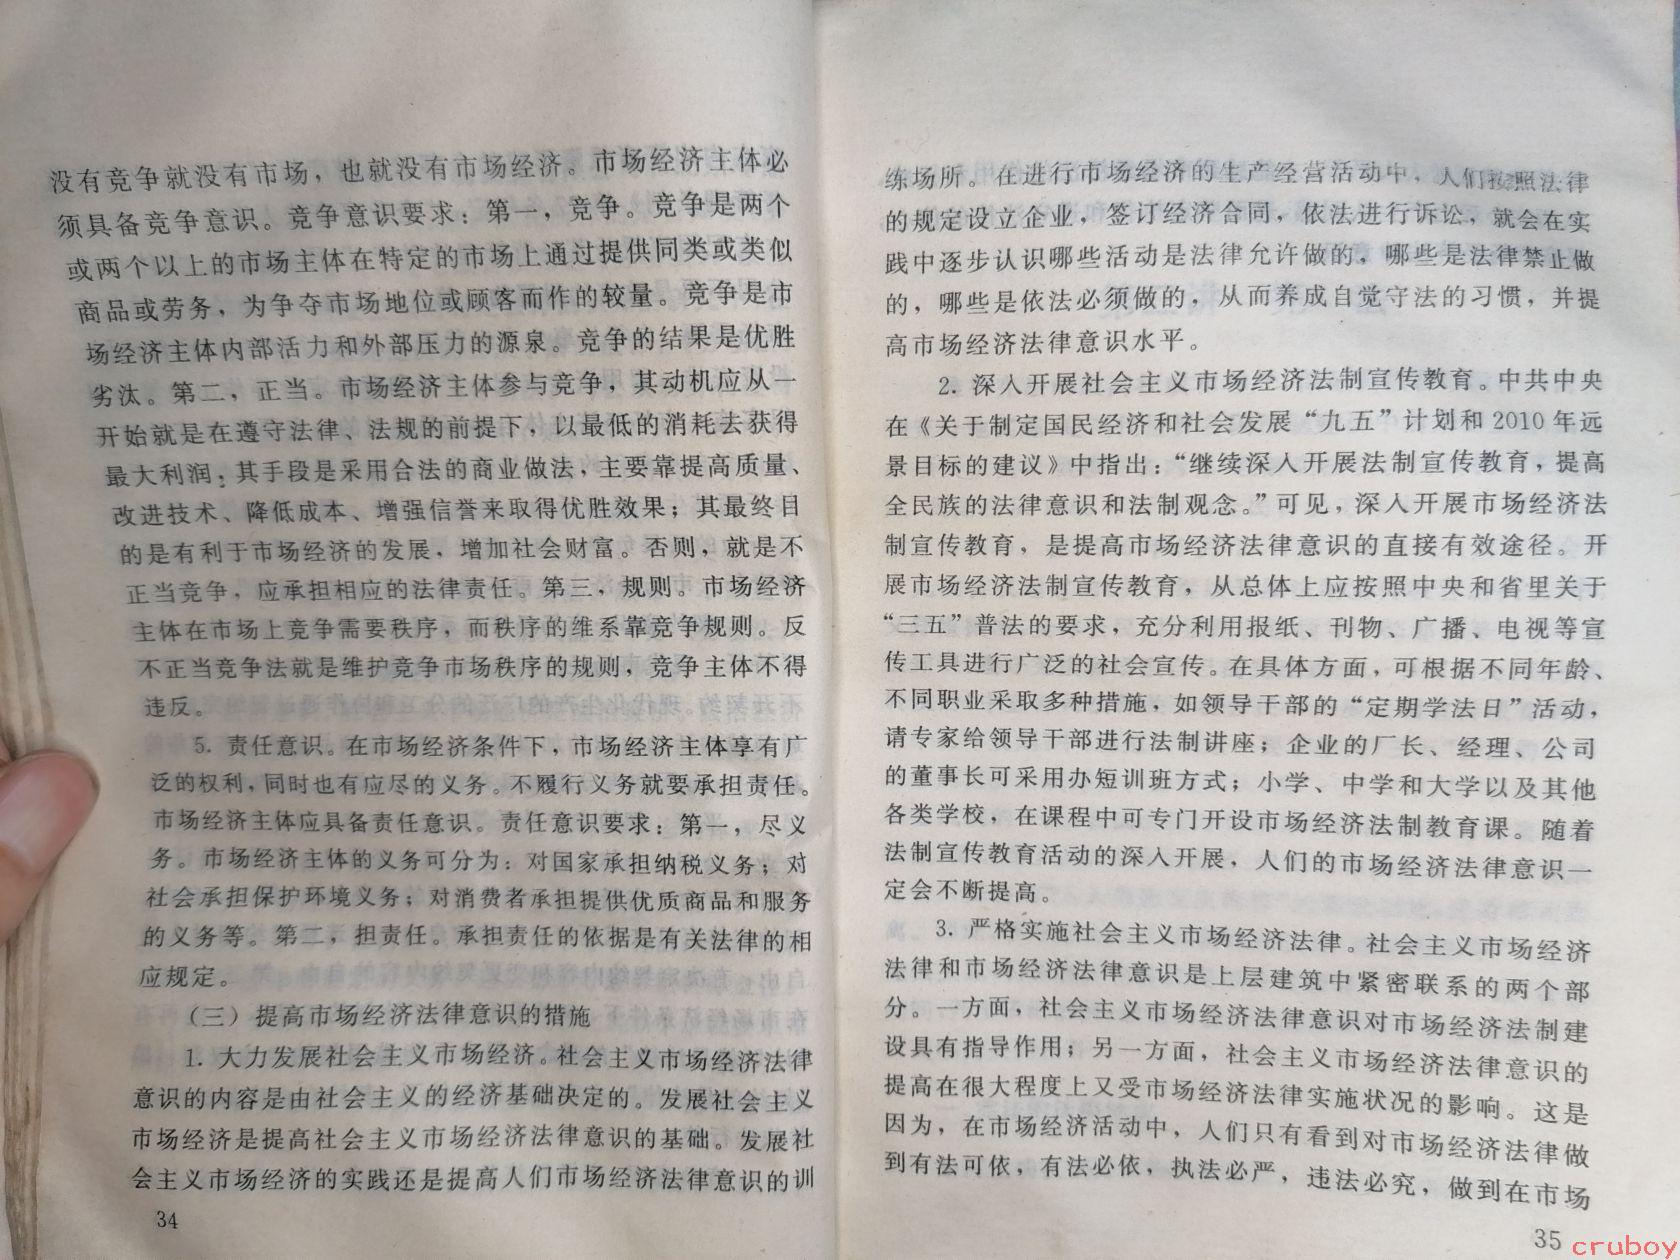 没有竞争就没有市场，也就没有市场经济。市场经济主体必
须具备竞争意识。竞争意识要求：第一，竞争。竞争是两个
或两个以上的市场主体在特定的市场上通过提供同类或类似
商品或劳务，为争夺市场地位或顾客而作的较量。竞争是市
场经济主体内部活力和外部压力的源泉。竞争的结果是优胜
劣汰。第二，正当。市场经济主体参与竞争，其动机应从一
开始就是在遵守法律、法规的前提下，以最低的消耗去获得
最大利润；其手段是采用合法的商业做法，主要靠提高质量、
改进技术、降低成本、增强信誉来取得优胜效果；其最终目
的是有利于市场经济的发展，增加社会财富。否则，就是不
正当竞争，应承担相应的法律责任。第三，规则。市场经济
主体在市场上竞争需要秩序，而秩序的维系靠竞争规则。反
不正当竞争法就是维护竞争市场秩序的规则，竞争主体不得
违反。
5. 责任意识。在市场经济条件下，市场经济主体享有广
泛的权利，同时也有应尽的义务。不履行义务就要承担责任。
市场经济主体应具备责任意识。责任意识要求：第一，尽义
务。市场经济主体的义务可分为：对国家承担纳税义务；对
社会承担保护环境义务；对消费者承担提供优质商品和服务
的义务等。第二，担责任。承担责任的依据是有关法律的相
应规定。
（三）提高市场经济法律意识的措施
1. 大力发展社会主义市场经济。社会主义市场经济法律
意识的内容是由社会主义的经济基础决定的。发展社会主义
市场经济是提高社会主义市场经济法律意识的基础。发展社
会主义市场经济的实践还是提高人们市场经济法律意识的训
34
练场所。在进行市场经济的生产经营活动中，人们按照法律
的规定设立企业，签订经济合同，依法进行诉讼，就会在实
践中逐步认识哪些活动是法律允许做的，哪些是法律禁止做
的，哪些是依法必须做的，从而养成自觉守法的习惯，并提
高市场经济法律意识水平。
2. 深入开展社会主义市场经济法制宣传教育。中共中央
在《关于制定国民经济和社会发展“九五”计划和2010年远
景目标的建议》中指出：“继续深入开展法制宣传教育，提高
全民族的法律意识和法制观念。”可见，深入开展市场经济法
制宣传教育，是提高市场经济法律意识的直接有效途径。开
展市场经济法制宣传教育，从总体上应按照中央和省里关于
“三五”普法的要求，充分利用报纸、刊物、广播、电视等宣
传工具进行广泛的社会宣传。在具体方面，可根据不同年龄、
不同职业采取多种措施，如领导干部的“定期学法日”活动，
请专家给领导干部进行法制讲座；企业的厂长、经理、公司
的董事长可采用办短训班方式；小学、中学和大学以及其他
各类学校，在课程中可专门开设市场经济法制教育课。随着
法制宣传教育活动的深入开展，人们的市场经济法律意识一
定会不断提高。
3. 严格实施社会主义市场经济法律。社会主义市场经济
法律和市场经济法律意识是上层建筑中紧密联系的两个部
分。一方面，社会主义市场经济法律意识对市场经济法制建
设具有指导作用；另一方面，社会主义市场经济法律意识的
提高在很大程度上又受市场经济法律实施状况的影响。这是
因为，在市场经济活动中，人们只有看到对市场经济法律做
到有法可依，有法必依，执法必严，违法必究，做到在市场
35
cruboy